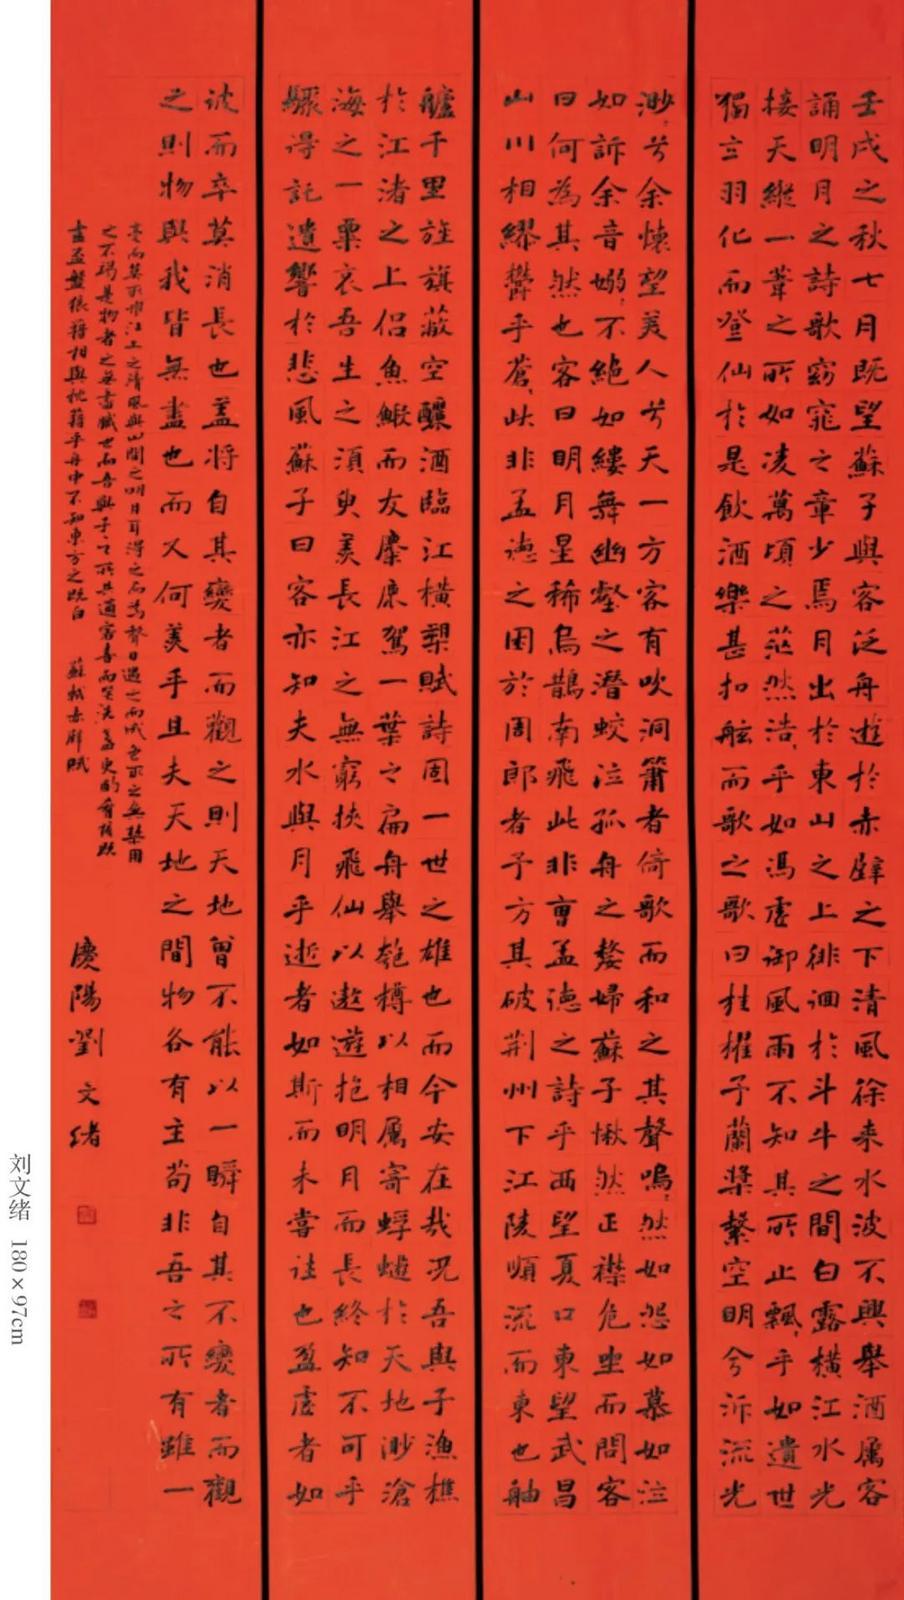 壬戌之秋七月既望蘇子與客泛舟遊於赤壁之下清風徐来水波不興舉酒属客
誦明月之詩歌窈窕之章少焉月出於東山之上徘徊於斗牛之間白露橫江水光
接天縱一葦之所如凌萬頃之茫然浩〻乎如馮虛御風而不知其所止飄〻乎如遺世
獨立羽化而登仙於是飲酒樂甚扣舷而歌之歌曰桂櫂兮蘭槳擊空明兮泝流光
渺〻兮余懷望美人兮天一方客有吹洞簫者倚歌而和之其聲嗚〻然如怨如慕如泣
如訴余音嫋〻不絕如縷舞幽壑之潛蛟泣孤舟之嫠婦蘇子愀然正襟危坐而問客
曰何為其然也客曰明月星稀烏鵲南飛此非曹孟德之詩乎西望夏口東望武昌
山川相繆鬱乎蒼〻此非孟德之困於周郎者乎方其破荊州下江陵順流而東也舳
艫千里旌旗蔽空釃酒臨江橫槊賦詩固一世之雄也而今安在哉況吾與子漁樵
於江渚之上侶魚鰕而友麋鹿駕一葉之扁舟舉匏樽以相属寄蜉蝣於天地渺滄
海之一粟哀吾生之須臾羨長江之無窮挾飛仙以遨遊抱明月而長終知不可乎
驟得託遺響於悲風蘇子曰客亦知夫水與月乎逝者如斯而未嘗往也盈虛者如
彼而卒莫消長也盖將自其變者而觀之則天地曾不能以一瞬自其不變者而觀
之則物與我皆無盡也而又何羨乎且夫天地之間物各有主苟非吾之所有雖一
毫而莫取惟江上之清風與山間之明月耳得之而為聲目遇之而成色取之無禁用
之不竭是物者之無盡藏也而吾與子之所共適客喜而笑洗盞更酌肴核既
盡盃盤狼藉相與枕藉乎舟中不知東方之既白 蘇軾赤壁賦
慶陽劉文緒
刘文绪 180×97cm